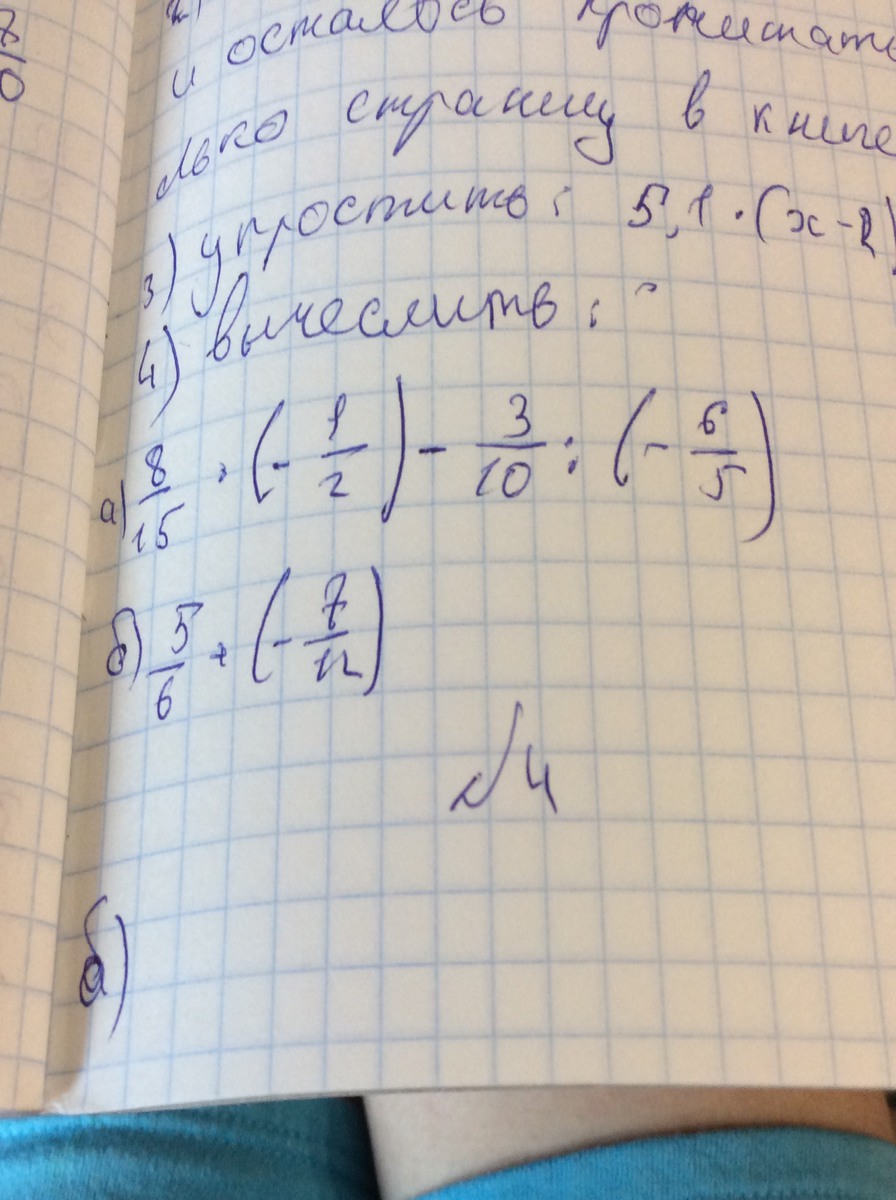 и осталось прочитать
лько страниц в книге
3) упростить: 5,1·(x-2)
4) вычеслить:
а) 8/15 · (- 1/2) - 3/10 : (- 6/5)
б) 5/6 + (- 7/12)
№4
б)